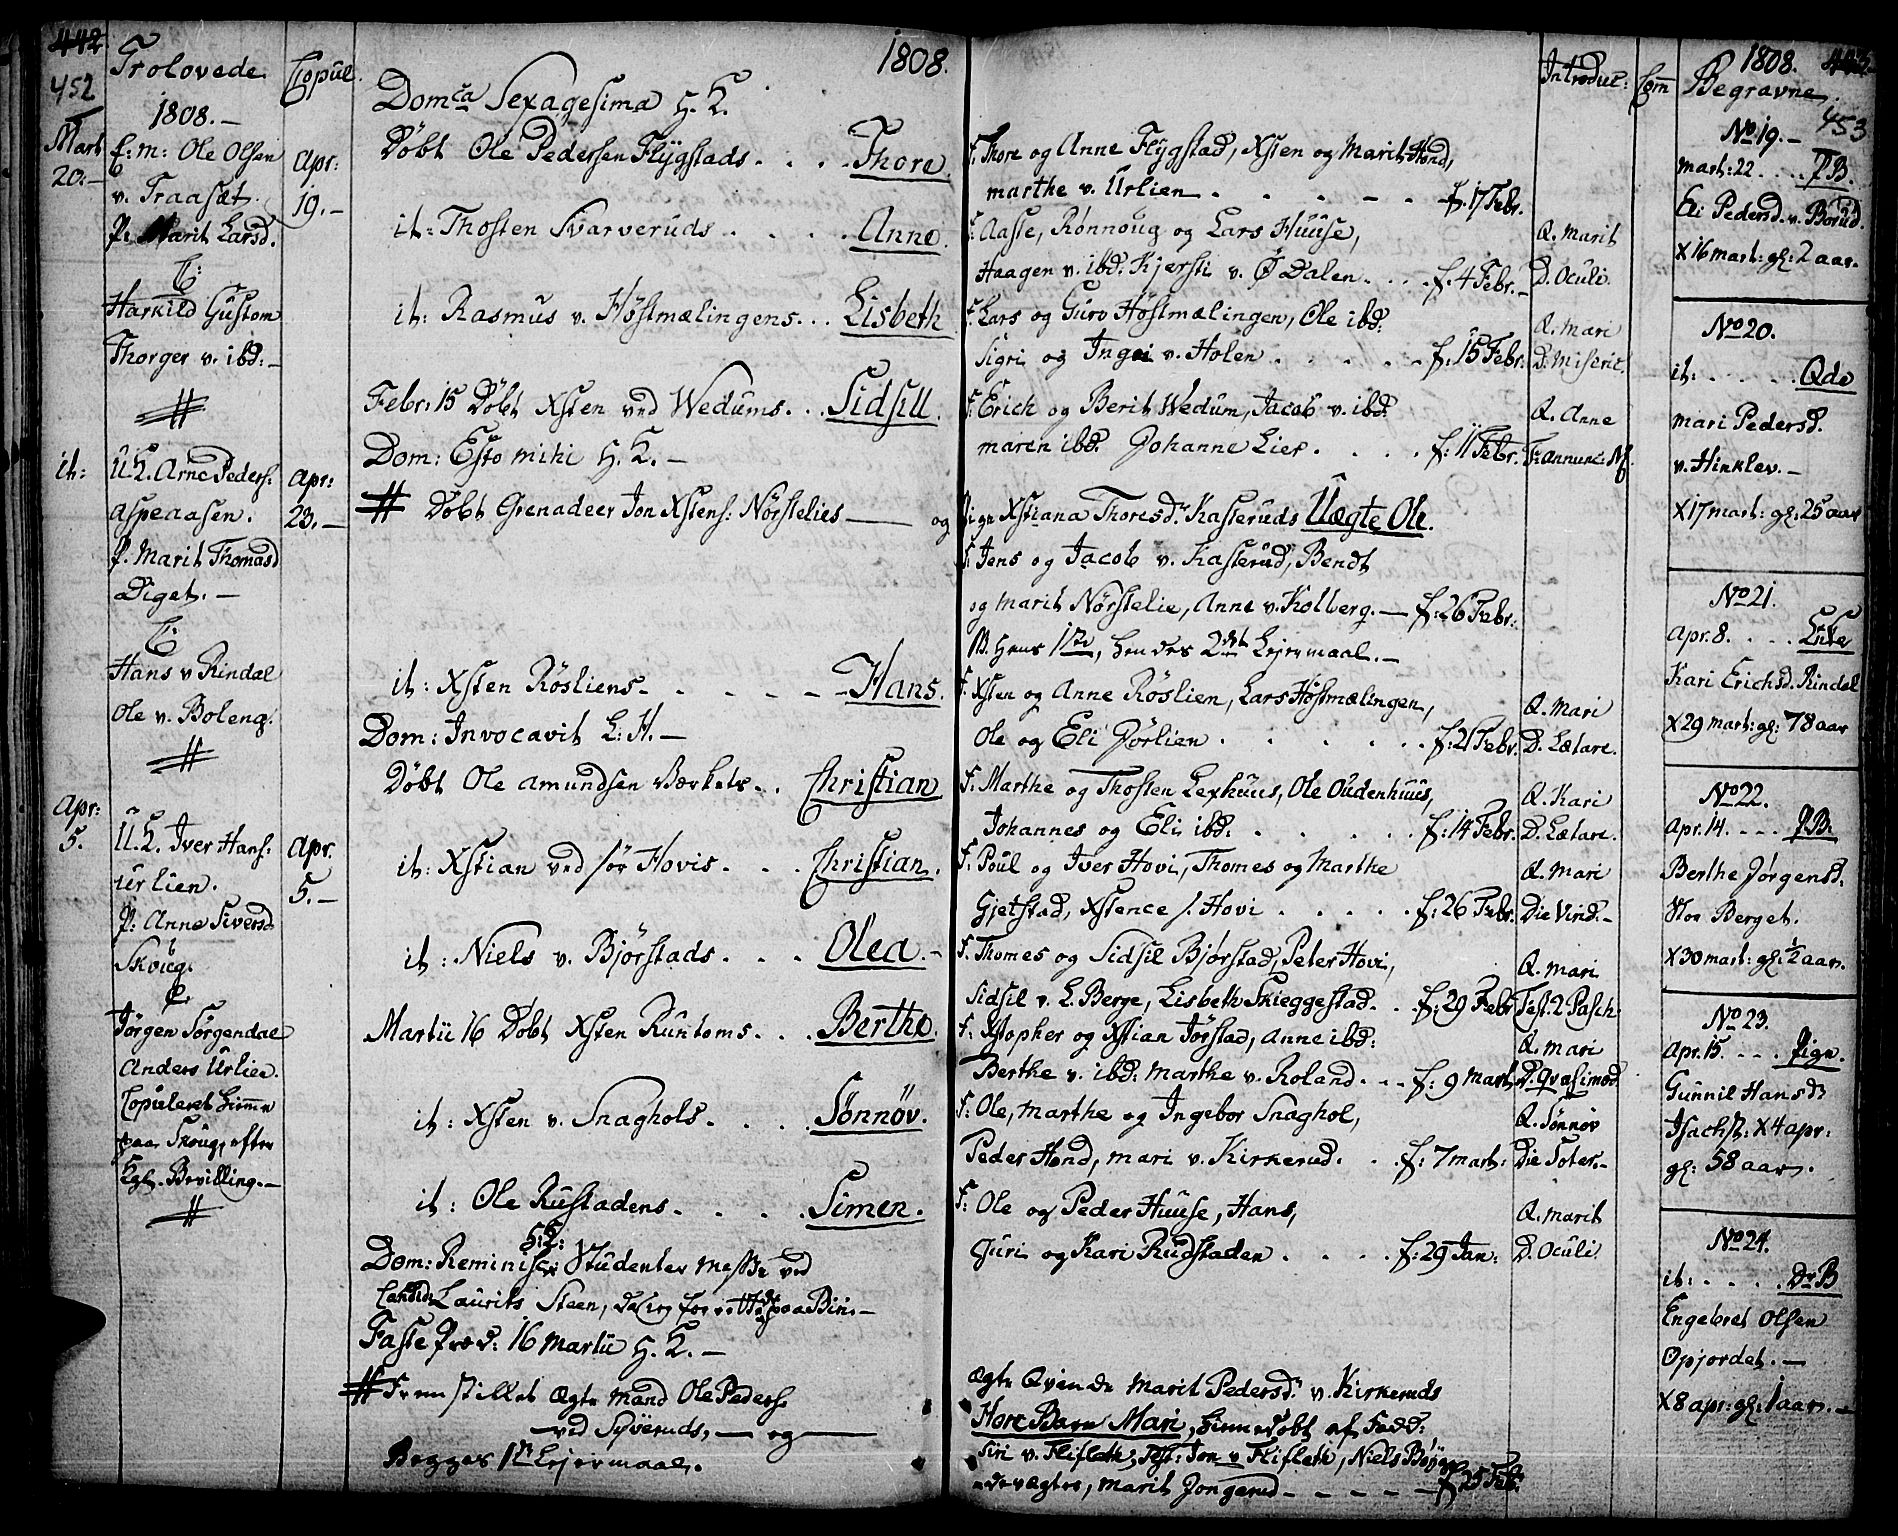 442
452
Trolovede
Copul.
1808.
1808.-
Mart
20.-
E: m: Ole Olsen
v. Traaset.
P. Marit Larsd.
C:
Harkild Gustom
Thorger v. ibd:-
Apr:
19.-
it:
U.K. Arne Peders:
Aspeaasen.
P. Marit Thomasd
Diget.-
C:
Hans v Rindal
Ole v. Boleng.
Apr:
23.-
Apr:
5.
U.K. Iver Hans:
Urlien.
P: Anne Siversd
Skoug.
C.
Jörgen Sörgendal
Anders Urlien.
Copuleret hiemme
paa Skoug, efter
Kgl. Bevilling.-
Apr.
5.-
Domca Sexagesima H. K.
Döbt Ole Pedersen Flÿgstads. . . . Thore
it: Thosten Svarveruds . . . . Anne
it: Rasmus v. Höstmælingens. . . Lisbeth
Febr: 15 Döbt Xsten ved Wedums. . . Sidsill
Dom: Esto mihi H. K.-
# Döbt Grenadeer Jon Xstens: Nörstelies — og
it: Xsten Rösliens- - - - - - Hans.
Dom: Invocavit L: H.-
Döbt Ole Amundsen Værkets. . . Christian
it: Xstian ved sör Hovis. . . . Christian.
it: Niels v. Bjørstads. . . . Olea.-
Martii 16 Döbt Xsten Runtoms. . . Berthe.
it: Xsten v. Snaghols. . . . . Sønnöv.
it: Ole Rustadens. . . . . Simen.
H: K:
Dom: Reminisc: Studenter Messe ved
Candid: Laurits Steen,
Faste Præd: 16 Martii H. K.-
# Fremstillet Ægte Mand Ole Peders:
—ved Syveruds, — og —
Begges 1te Lejermaal.
F. Thore og Anne Flÿgstad, Xsten og Marit Hond,
Marthe v. Urlien . . . . . f. 17 Febr.
F: Aaste, Rønnoug og Lars Huuse,
Haagen v. ibd: Kjersti v. Ødalen. . . f. 4 Febr.-
F: Lars og Guro Höstmælingen, Ole ibd:
Sigri og Ingri v. Holen . . . . . f. 15 Febr:
F: Erich og Berit Wedum, Jacob v. ibd:
Maren ibd. Johanne Lier. . . . . f: 11 Febr.
Pige Xstiana Thoresd. Kasteruds Uægte Ole.
F. Jens og Jacob v. Kasterud, Bendt
og Marit Nörstelie, Anne v. Kolberg.— f: 26 Febr:
NB. hans 1te, hendes 2det Lejermaal.—
F. Xsten og Anne Röslien, Lars Höstmælingen,
Ole og Eli Görlien . . . . . . f: 21 Febr.
F. Marthe og Thosten Lexhuus, Ole Oudenhuus,
Johannes og Eli ibd: . . . . . f: 14 Febr.
F. Poul og Iver Hovi, Thomes og Marthe
Gjetstad, Xstence s. Hovi . . . . . f: 26 Febr:
F. Thomes og Sidsil Bjørstad, Peter Hovi,
Sidsil v. L. Berge, Lisbeth Skieggestad. . . f: 29 Febr
F: Xstopher og Xstian Jörstad, Anne ibd:
Berthe v. ibd: Marthe v. Roland. . . f: 9 Mart.
F: Ole, Marthe og Ingebor Snaghol,
Peder Hond, Mari v. Kirkerud. . . f. 7 Mart:
F: Ole og Peder Huuse, Hans,
Guri og Kari Rudstaden . . . . f: 29 Jan:
Ægte Qvende Marit Pedersd. v. Kirkeruds
Hore Barn Mari, hiemedöbt af Fadd:
Siri v. Flifleth, Jon v. Flifleth, Niels
Marit Jongerud - - - - - f 25 Feb:
Introduc: Com
Q. Marit
D. Oculi.
Q. Mari
D. Miseric:
Q. Anne
F: annunc: M.
Q. Mari
D. Lætare.
Q. Kari
D. Lætare.
Q. Mari
Die Virid.-
Q. Mari
Fest. 2 Pasch:
Q. Mari
D. Qvasimod.
Q. Sönnöv
Die Soter.-
Q. Marit
D. Oculi.
1808.
453
Begravne.
No 19.-
Mart: 22 . . . . P.B.
Eli Pedersd. v. Borud.
X 16 Mart: gl: 2 aar.
No 20.
it: . . . . . Qde
Mari Pedersd.
v. Hinklev.-
X 17 Mart: gl: 25 aar
No 21.
Apr. 8. . . . Enke
Kari Erichsd. Rindal
X 29 Mart: gl: 78 aar
No 22.
Apr. 14. . . . P.B:
Berthe Jörgensd:
Hos Berget.
X 30 Mart: gl: 1/2 aar.
No 23.
Apr. 15. . . . Pige.
Gunnil Hansd:
X 4 Apr:
gl: 58 aar.
No 24.
it: . . . . Dr B
Engebret Olsen
Opjordet.—
X 8 Apr: gl: 1 aar.—